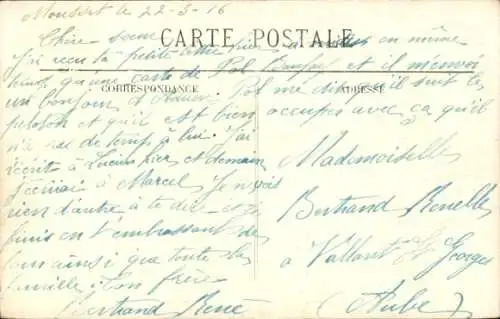 Mousset le 22-3-16
CARTE POSTALE
Chère soeur
J'ai reçu ta petite lettre hier à midi en même
temps qu'une carte de Pol et il m'envoi
CORRESPONDANCE
ADRESSE
un bonjour
Pol me dis qu'il suit le
peloton et qu'il est bien
occuper avec ça qu'il
n'a pas de temps à lui. J'ai
écrit à Lucien hier et demain
j'écrirai à Marcel. Je ne vois
rien d'autre à te dire et je
finis en t'embrassant de
loin ainsi que toute la
famille. Ton frère
Bertrand René
Mademoiselle
Bertrand Renelle
à Vallant St Georges
(Aube)